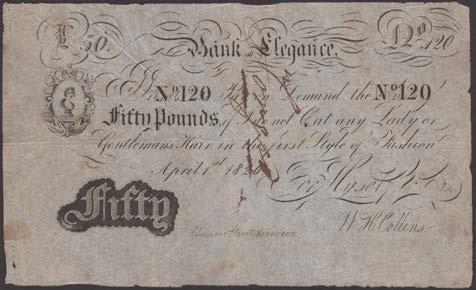 £ 50. Bank of Elegance. No. 120
No 120 Demand the No 120
Fifty Pounds, if I do not Cut any Lady or
Gentlemans Hair in the first Style of Fashion
April 1st
For Myself & Co.
Fifty
W. H. Collins
Street